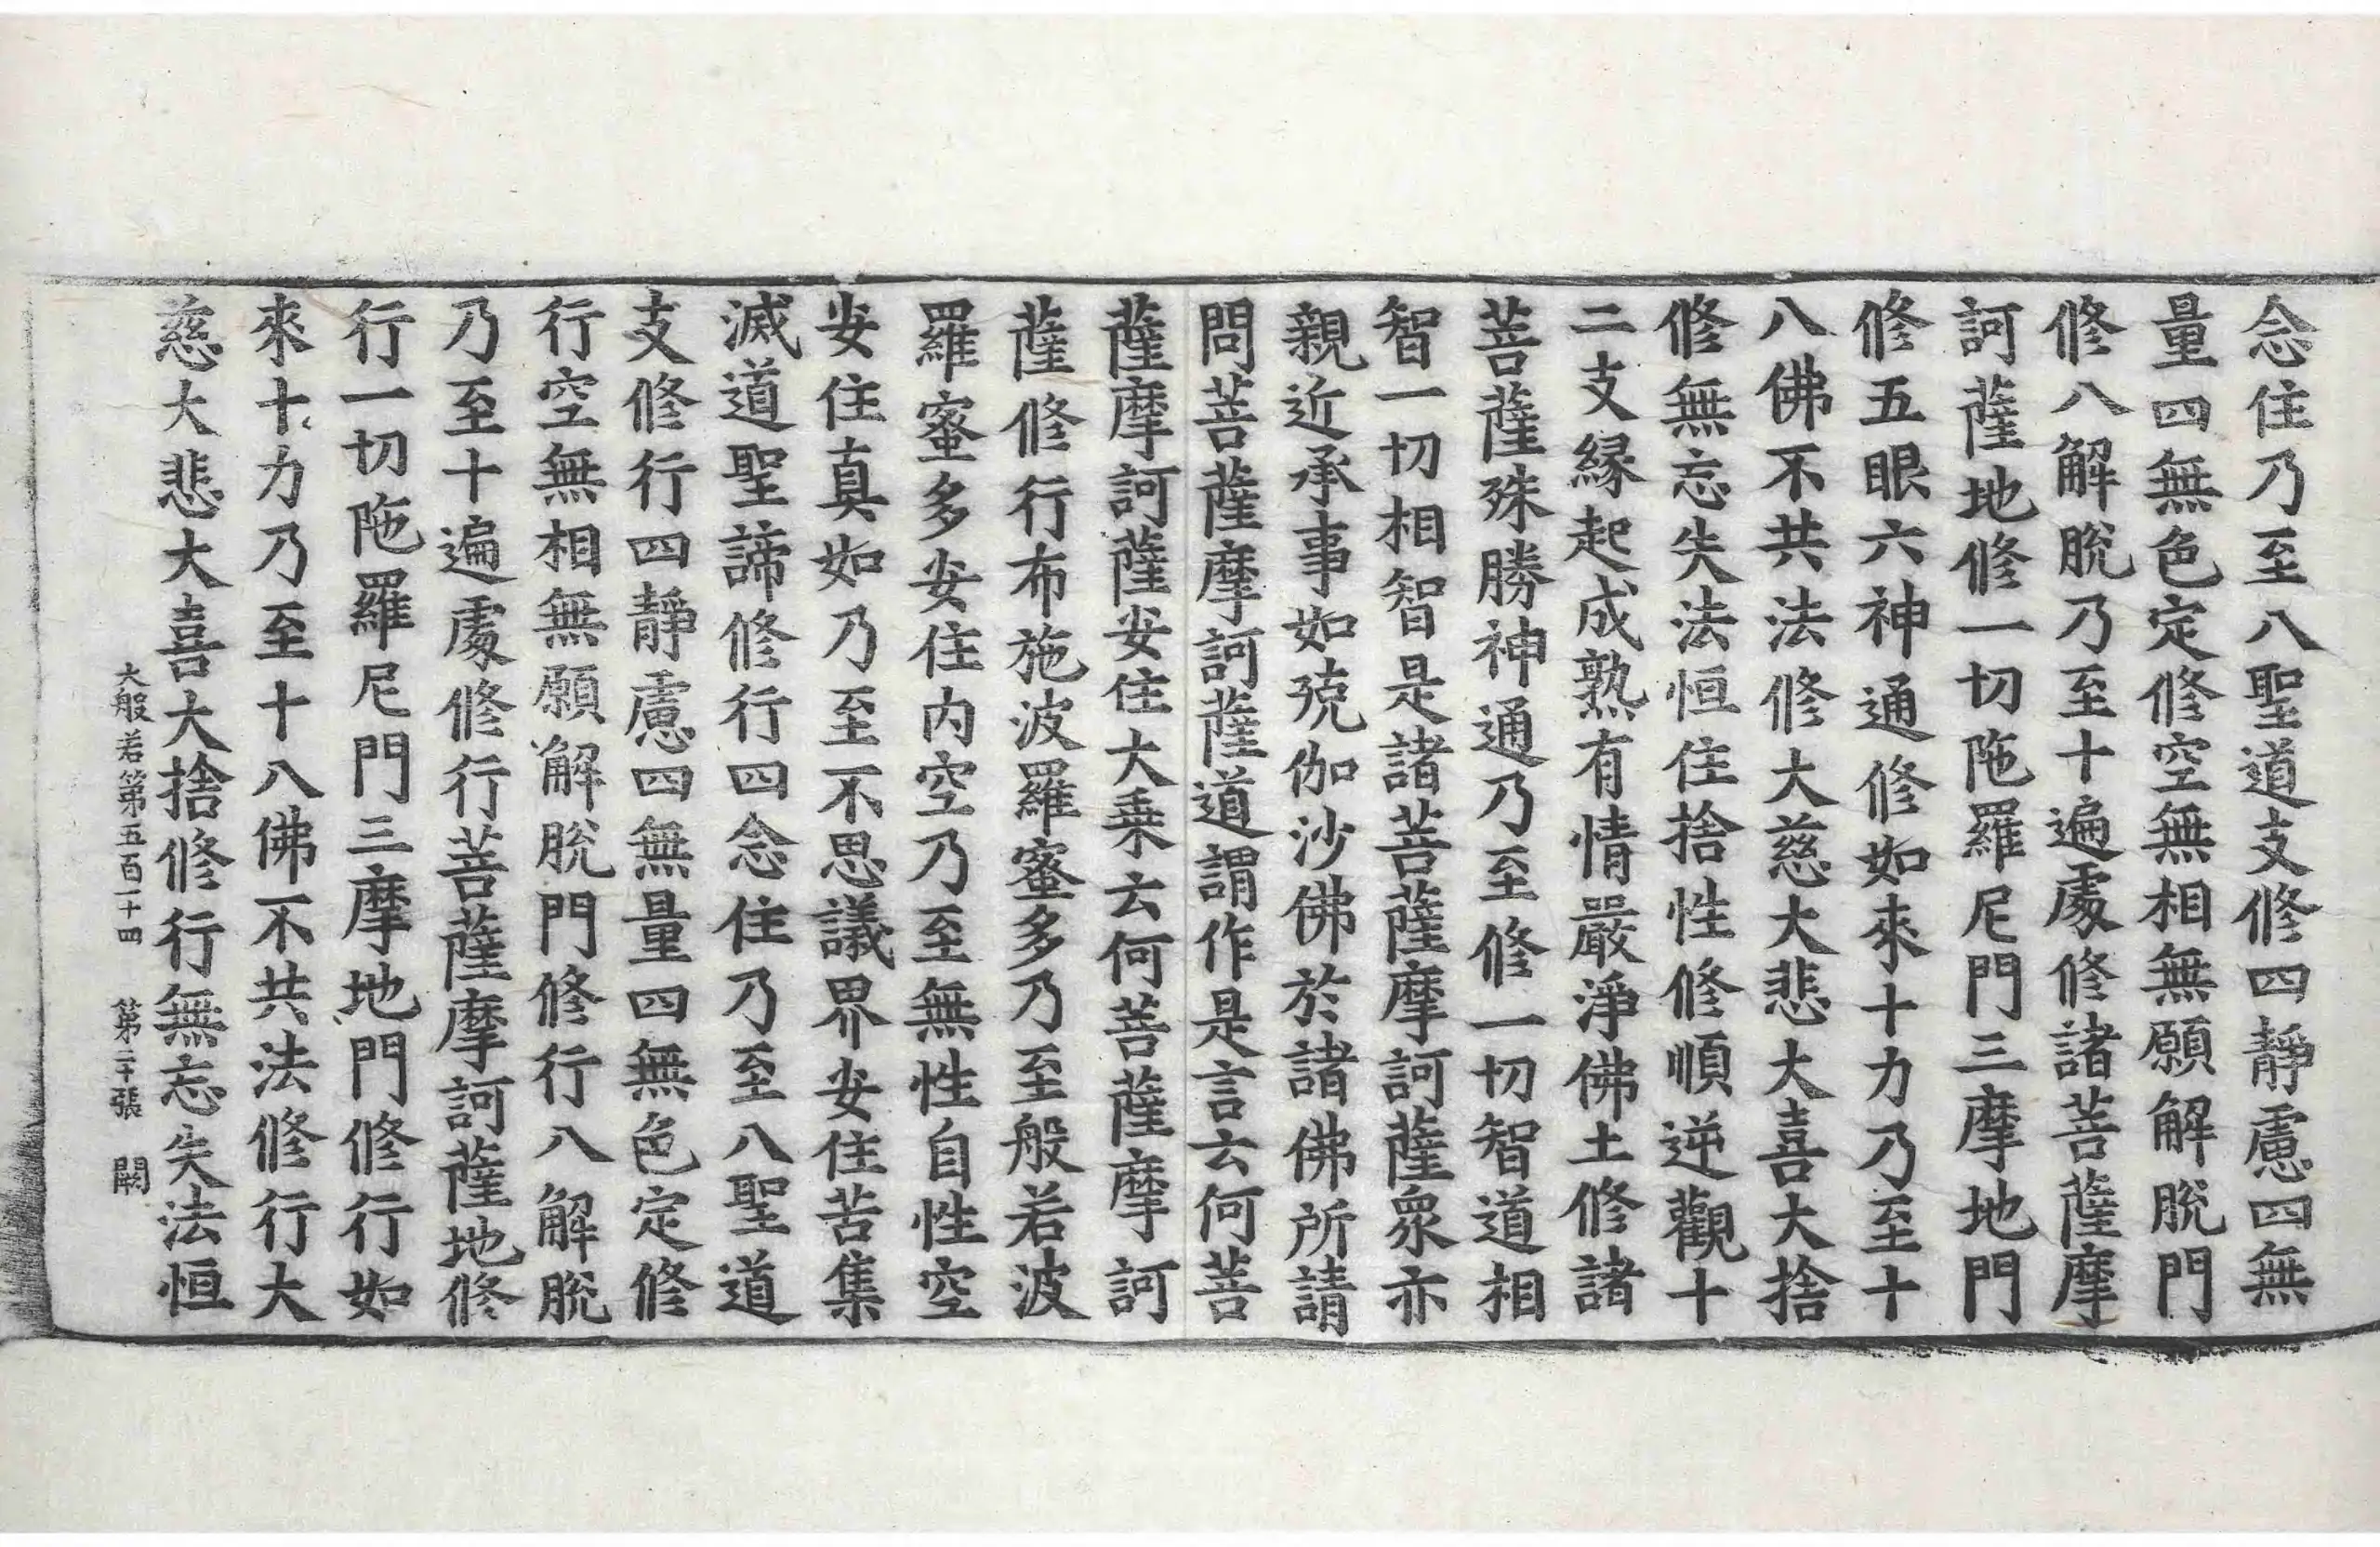 念住乃至八聖道支修四靜慮四無
量四無色定修空無相無願解脫門
修八解脫乃至十遍處修諸菩薩摩
訶薩地修一切陁羅尼門三摩地門
修五眼六神通修如來十力乃至十
八佛不共法修大慈大悲大喜大捨
修無忘失法恒住捨性修順逆觀十
二支緣起成熟有情嚴淨佛土修諸
菩薩殊勝神通乃至修一切智道相
智一切相智是諸菩薩摩訶薩衆亦
親近承事如殑伽沙佛於諸佛所請
問菩薩摩訶薩道謂作是言云何菩
薩摩訶薩安住大乗云何菩薩摩訶
薩修行布施波羅蜜多乃至般若波
羅蜜多安住內空乃至無性自性空
安住真如乃至不思議界安住苦集
滅道聖諦修行四念住乃至八聖道
支修行四靜慮四無量四無色定修
行空無相無願解脫門修行八解脫
乃至十遍處修行菩薩摩訶薩地修
行一切陁羅尼門三摩地門修行如
來十力乃至十八佛不共法修行大
慈大悲大喜大捨修行無忘失法恒
大般若第五百一十四 第二十張 闕